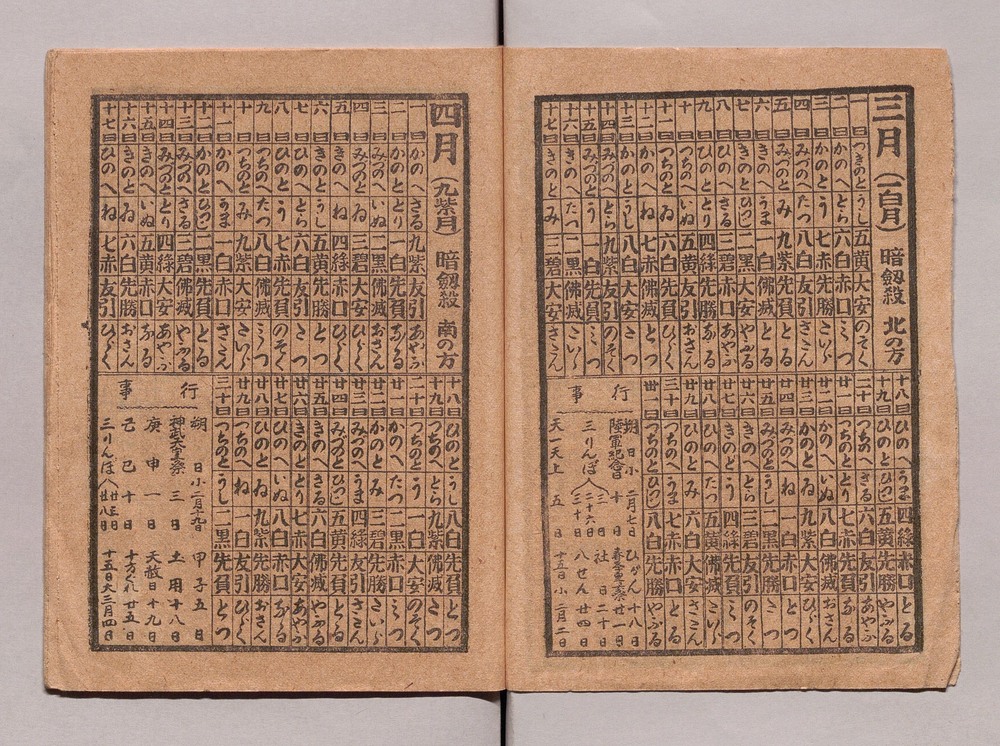 三月（一白月）暗劔殺　北の方
一日つちのとうし五黄大安のぞく
二日かのへとら六白赤口みつ
三日かのとう七赤先勝たいら
四日みづのへたつ八白友引さだん
五日みづのとみ九紫先負とる
六日きのへうま一白佛滅とる
七日きのとひつじ二黒大安やぶる
八日ひのへさる三碧赤口あやぶ
九日ひのととり四緑先勝なる
十日つちのへいぬ五黄友引おさん
十一日つちのとゐ六白先負ひらく
十二日かのへね七赤佛滅とつ
十三日かのとうし八白大安たつ
十四日みづのへとら九紫友引のぞく
十五日みづのとう一白先負みつ
十六日きのへたつ二黒佛滅たいら
十七日きのとみ三碧大安さだん
十八日ひのへうま四緑赤口とる
十九日ひのとひつじ五黄先勝やぶる
二十日つちのへさる六白友引あやぶ
廿一日つちのととり七赤先負なる
廿二日かのへいぬ八白佛滅おさん
廿三日かのとゐ九紫大安ひらく
廿四日みづのへね一白赤口とつ
廿五日みづのとうし二黒先勝たつ
廿六日きのへとら三碧友引のぞく
廿七日きのとう四緑先負みつ
廿八日ひのへたつ五黄佛滅たいら
廿九日ひのとみ六白大安さだん
三十日つちのへうま七赤赤口とる
卅一日つちのとひつじ八白先勝やぶる
行事
朔日小二月七日　ひがん十八日
陸軍紀念日十日　春季皇霊祭廿一日
三りんぼ　三日　二十六日　三十日　社日二十日　八せん廿四日
天一天上五日　十五日小二月二日
四月（九紫月）暗劔殺　南の方
一日かのへさる九紫友引あやぶ
二日かのととり一白先負なる
三日みづのへいぬ二黒佛滅おさん
四日みづのとゐ三碧大安ひらく
五日きのへね四緑赤口ひらく
六日きのとうし五黄先勝とつ
七日ひのへとら六白友引たつ
八日ひのとう七赤先負のぞく
九日つちのへたつ八白佛滅みつ
十日つちのとみ九紫大安たいら
十一日かのへうま一白赤口さだん
十二日かのとひつじ二黒先負とる
十三日みづのへさる三碧佛滅やぶる
十四日みづのととり四緑大安あやぶ
十五日きのへいぬ五黄赤口なる
十六日きのとゐ六白先勝おさん
十七日ひのへね七赤友引ひらく
十八日ひのとうし八白先負とつ
十九日つちのへとら九紫佛滅たつ
二十日つちのとう一白大安のぞく
廿一日かのへたつ二黒赤口みつ
廿二日かのとみ三碧先勝たいら
廿三日みづのへうま四緑友引さだん
廿四日みづのとひつじ五黄先負とる
廿五日きのへさる六白佛滅やぶる
廿六日きのととり七赤大安あやぶ
廿七日ひのへいぬ八白赤口なる
廿八日ひのとゐ九紫先勝おさん
廿九日つちのへね一白友引ひらく
三十日つちのとうし二黒先負とつ
行事
朔日小二月十九日　甲子五日
神武天皇祭三日　土用十八日
庚申一日　天赦日十九日
己巳十日　十方ぐれ廿五日
三りんぼ　廿三日　廿八日　十五日大三月四日